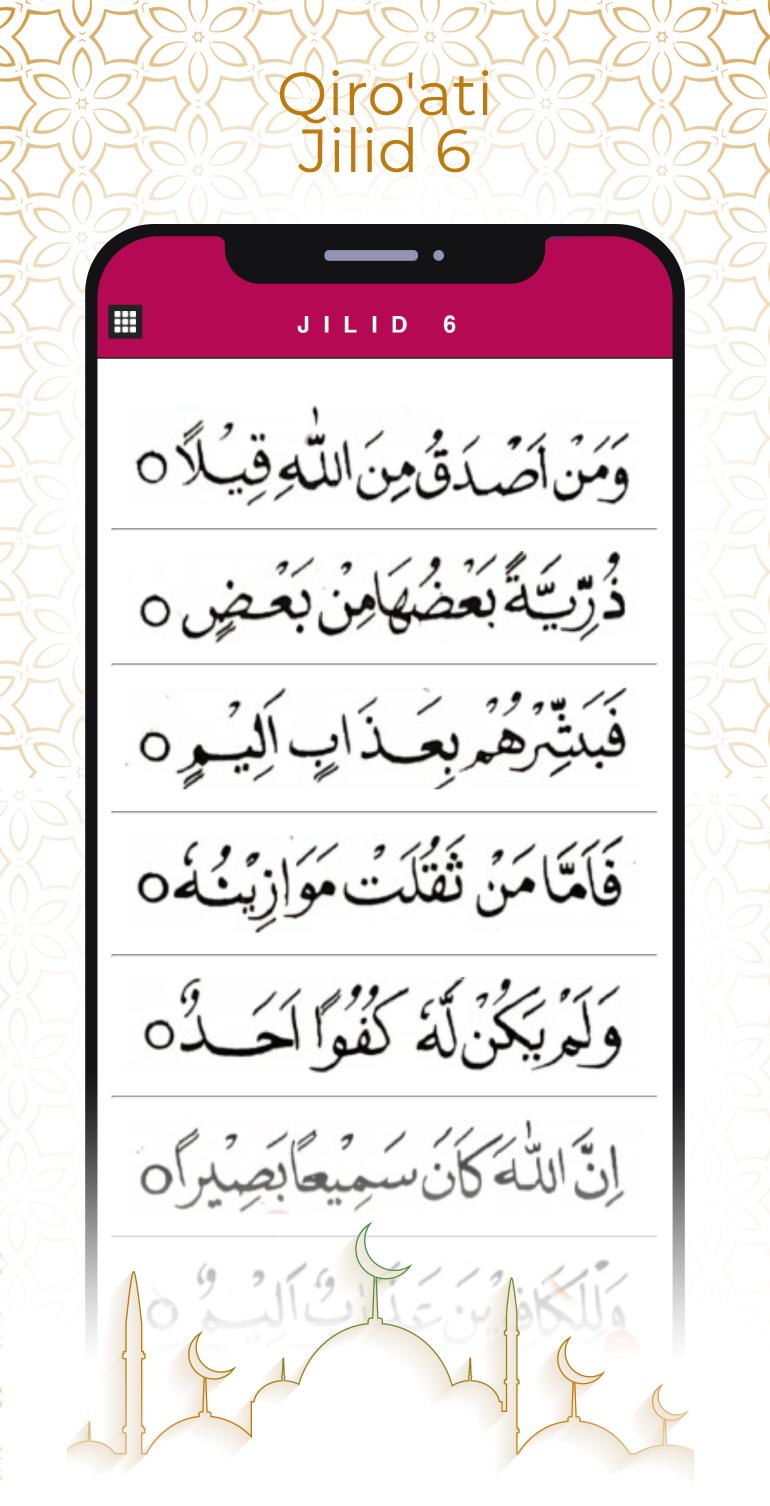 Qiro'ati
Jilid 6
JILID 6
وَمَنْ اَصْدَقُ مِنَ اللّٰهِ قِيْلًا ○
ذُرِّيَّةً بَعْضُهَا مِنْ بَعْضٍ ○
فَبَشِّرْهُمْ بِعَذَابٍ اَلِيْمٍ ○
فَاَمَّا مَنْ ثَقُلَتْ مَوَازِيْنُهٗ ○
وَلَمْ يَكُنْ لَّهٗ كُفُوًا اَحَدٌ ○
اِنَّ اللّٰهَ كَانَ سَمِيْعًا بَصِيْرًا ○
وَلِلْكَافِرِيْنَ عَذَابٌ اَلِيْمٌ ○